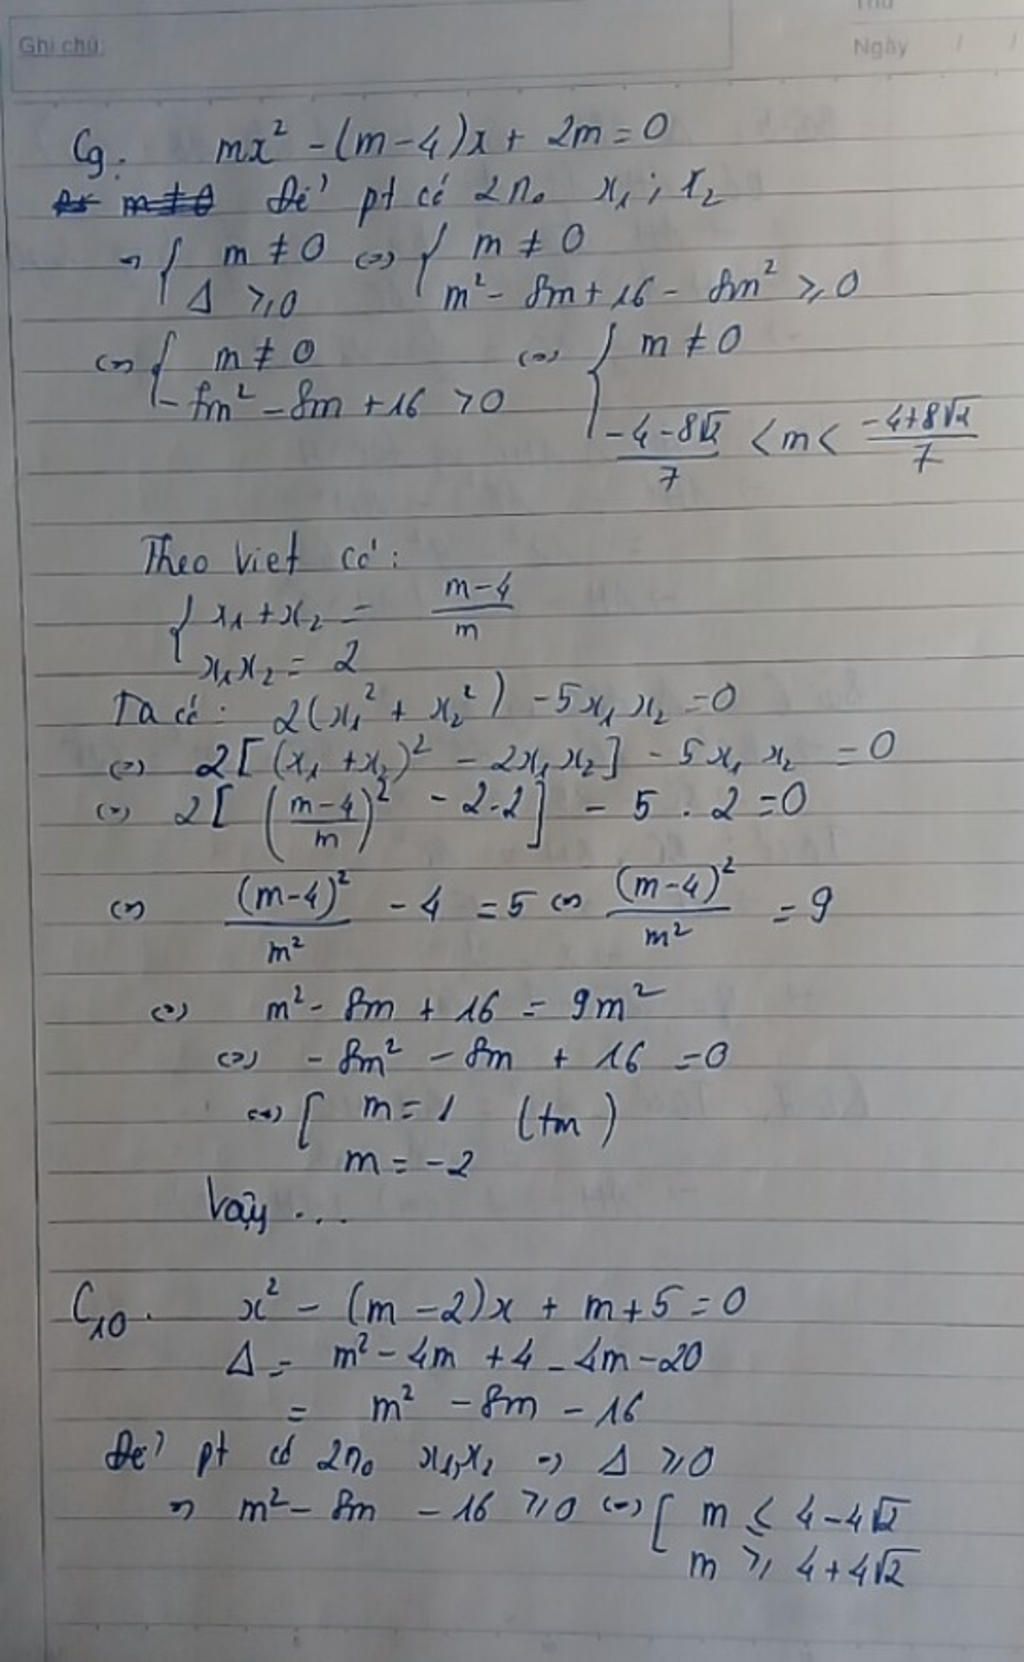 Thứ
Ghi chú:
Ngày / /
C9. mx² - (m-4)x + 2m = 0
m ≠ 0 Để pt có 2n₀ x₁ ; x₂
=> { m ≠ 0 <=> { m ≠ 0
Δ ⩾ 0 m² - 8m + 16 - 8m² ⩾ 0
<=> { m ≠ 0 <=> { m ≠ 0
-7m² - 8m + 16 > 0 (-4-8√2)/7 < m < (-4+8√2)/7
Theo Viet có:
{ x₁ + x₂ = (m-4)/m
x₁x₂ = 2
Ta có: 2(x₁² + x₂²) - 5x₁x₂ = 0
<=> 2[(x₁+x₂)² - 2x₁x₂] - 5x₁x₂ = 0
<=> 2[((m-4)/m)² - 2.2] - 5 . 2 = 0
<=> (m-4)²/m² - 4 = 5 <=> (m-4)²/m² = 9
<=> m² - 8m + 16 = 9m²
<=> -8m² - 8m + 16 = 0
<=> [ m = 1 (tm)
m = -2
Vậy ...
C10. x² - (m-2)x + m+5 = 0
Δ = m² - 4m + 4 - 4m - 20
= m² - 8m - 16
Để pt có 2n₀ x₁,x₂ => Δ ⩾ 0
=> m² - 8m - 16 ⩾ 0 <=> [ m ⩽ 4-4√2
m ⩾ 4+4√2